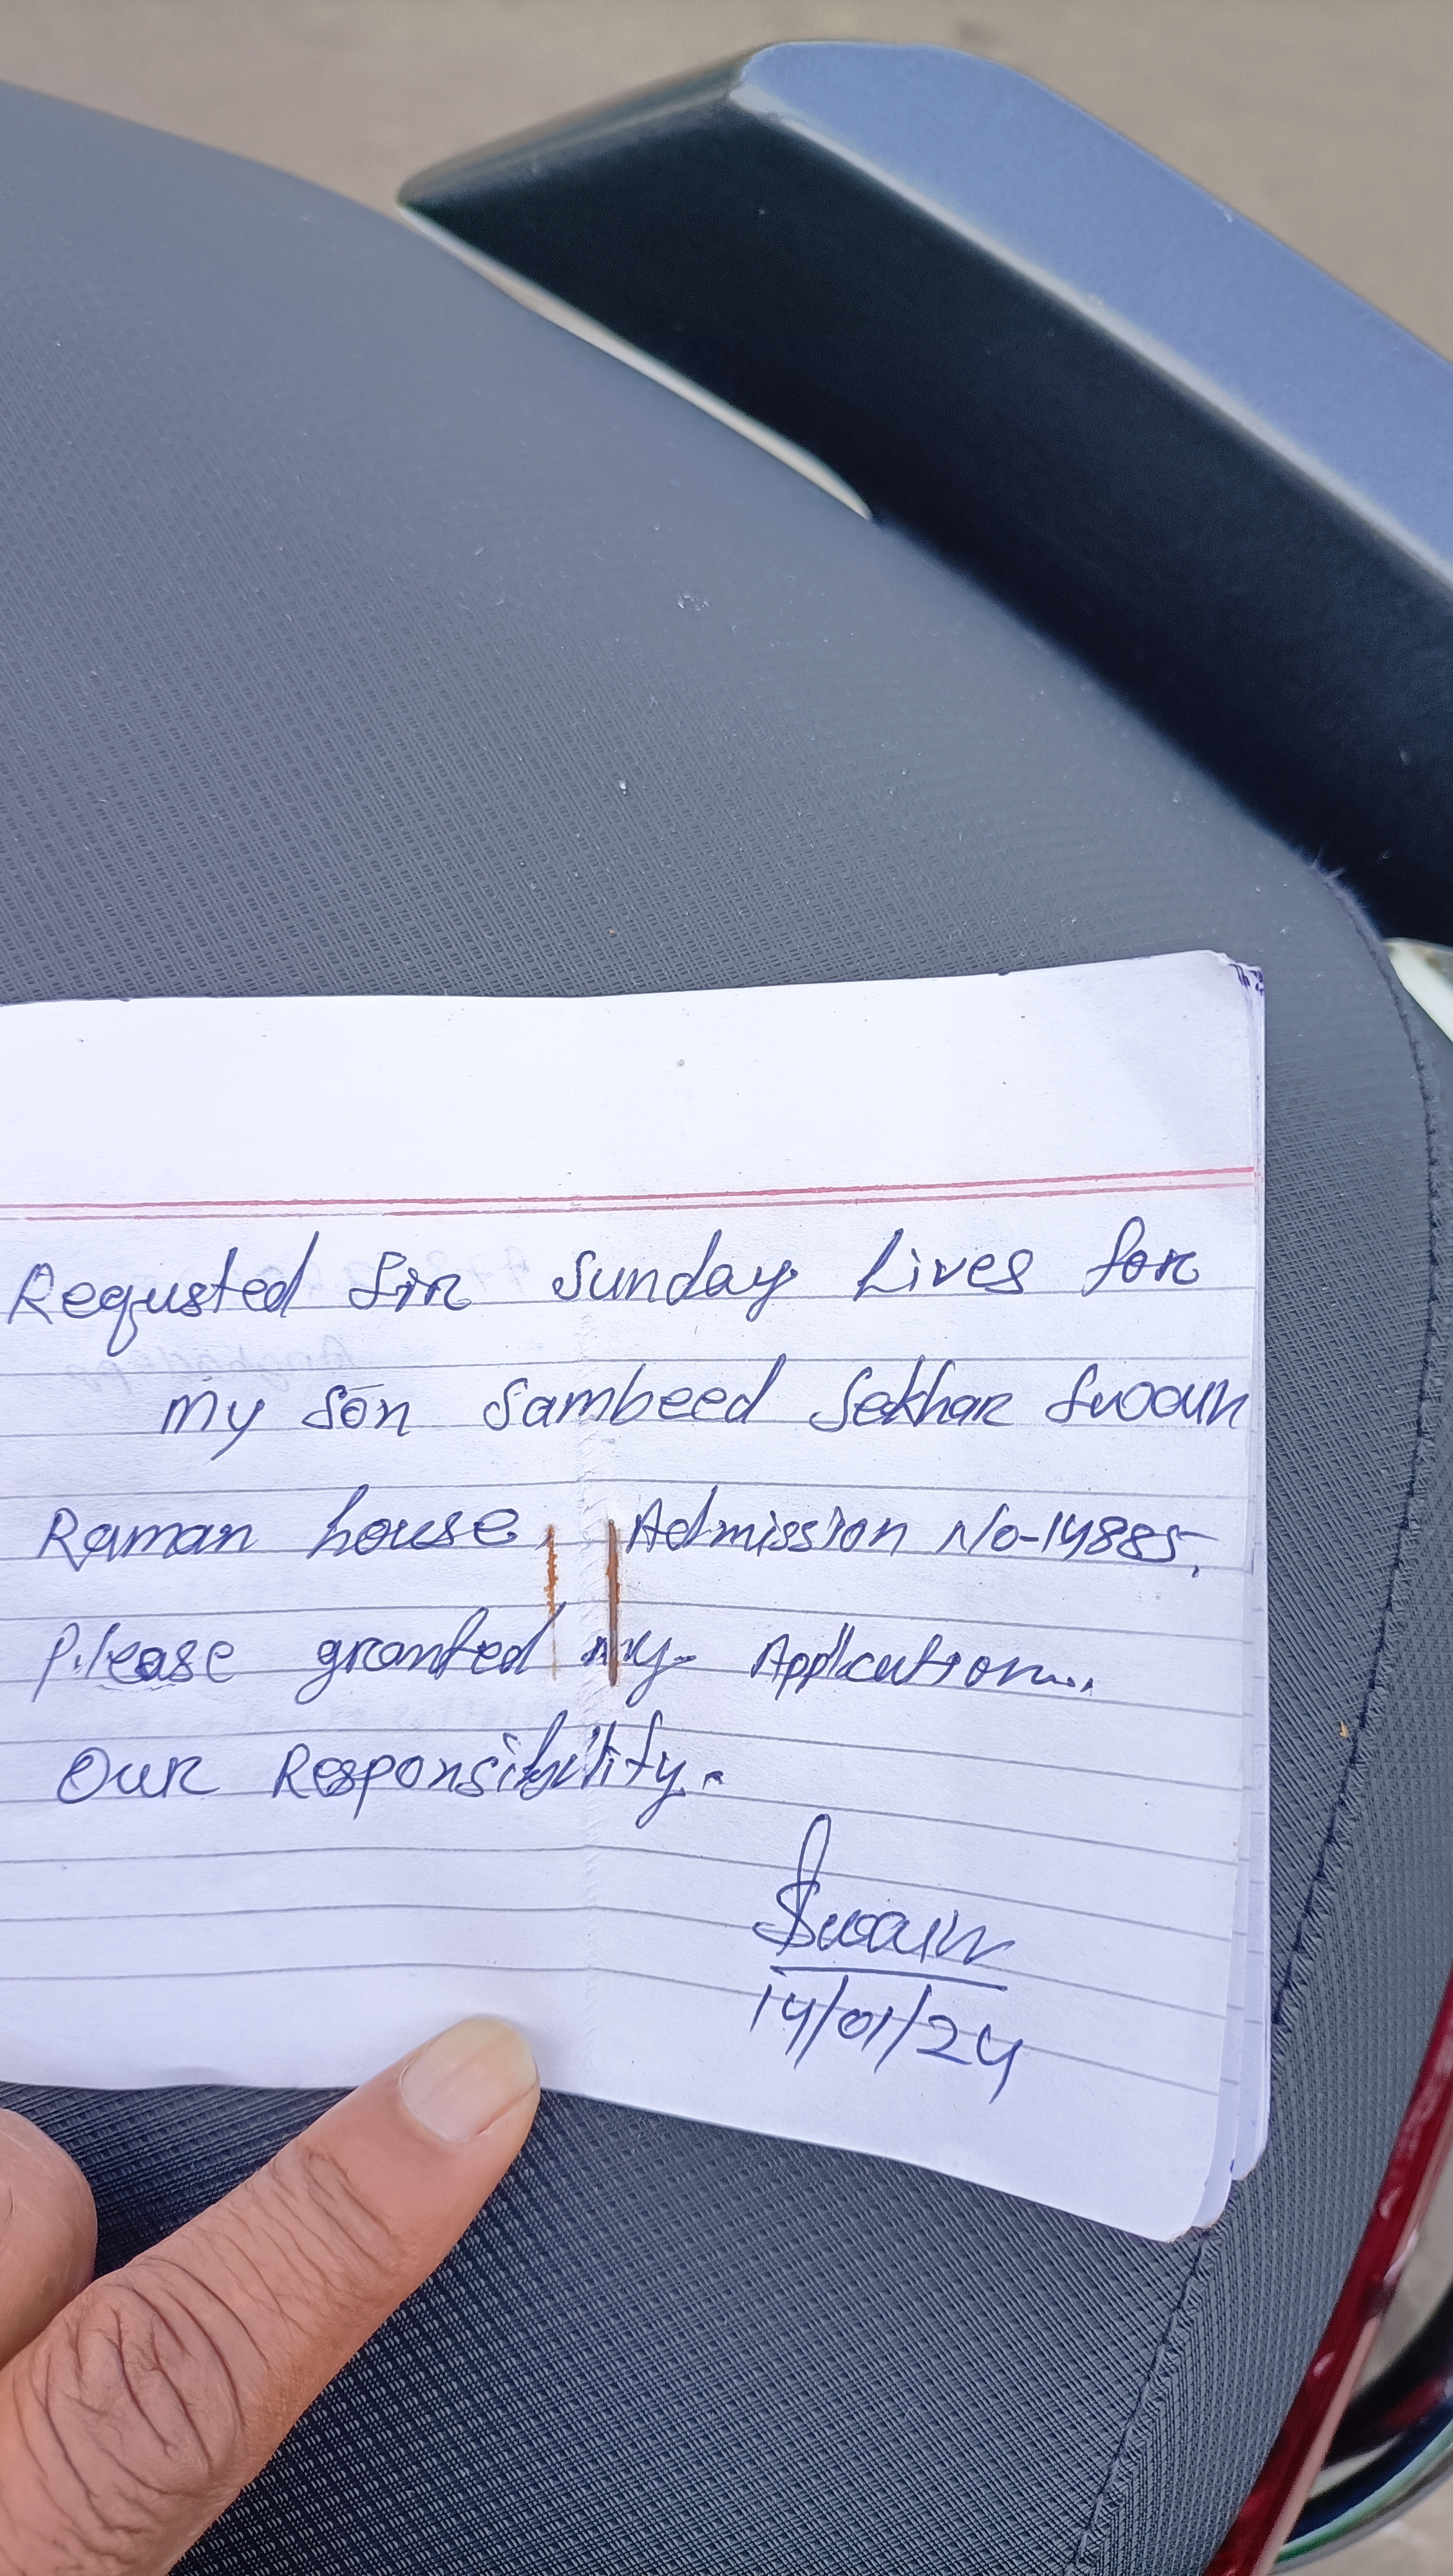 Requsted Sir Sunday Lives for
my son Sambeed Sekhar Swain
Raman house, Admission No-14885,
Please granted my Application...
Our Responsibility.
Swain
14/01/24